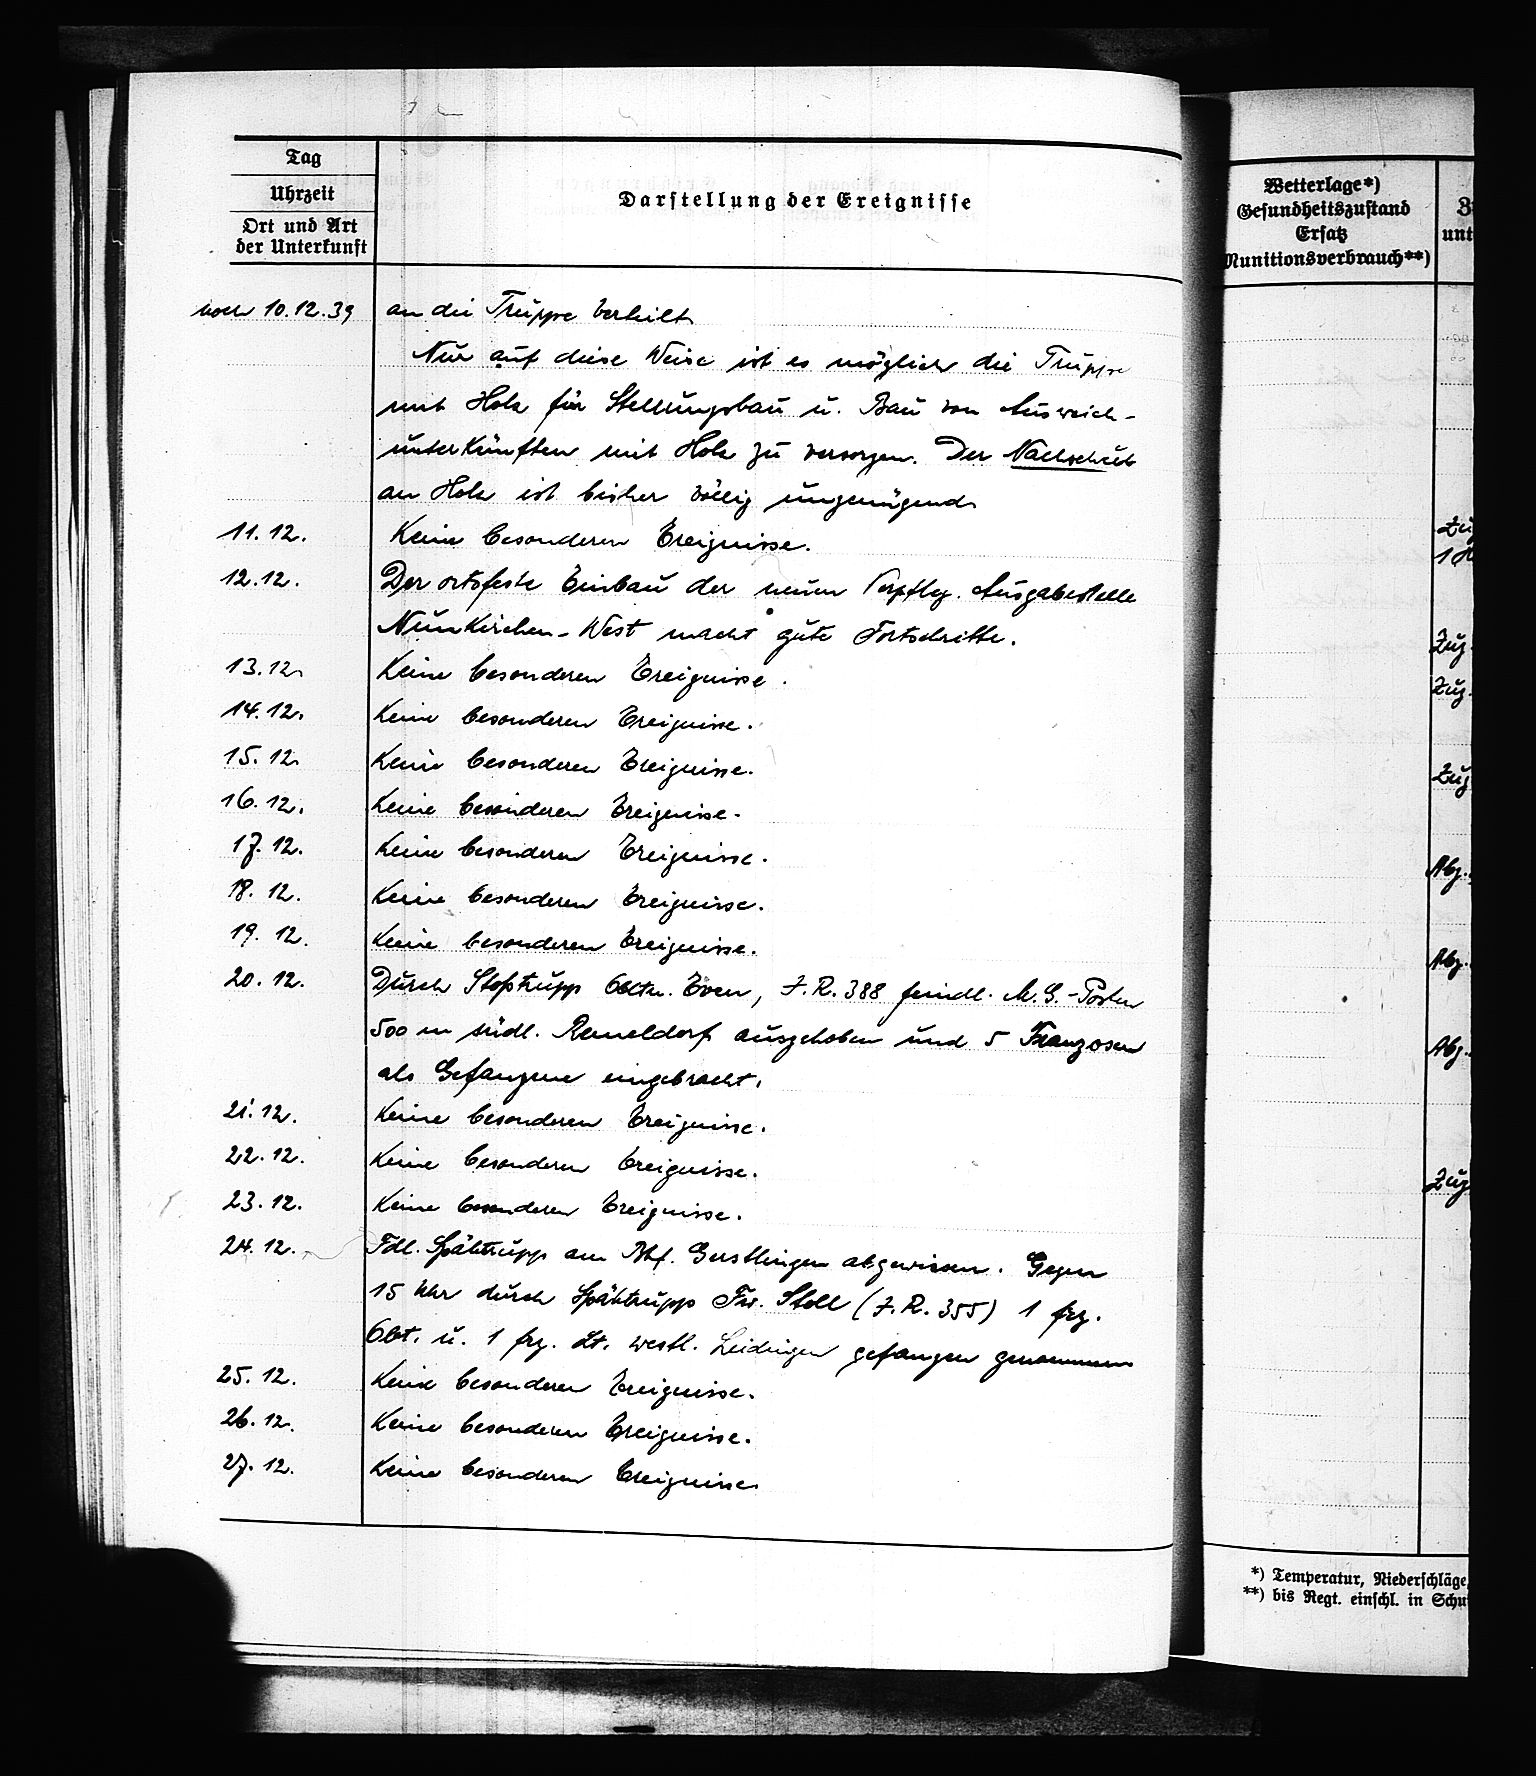 Tag
Uhrzeit
Ort und Art
der Unterkunft
Darstellung der Ereignisse
noch 10.12.39 an die Truppe verteilt.
Nur auf diese Weise ist es möglich die Truppe
mit Holz für Stellungsbau u. Bau von Ausweich-
unterkünften mit Holz zu versorgen. Der Nachschub
an Holz ist bisher völlig ungenügend.
11.12. Keine besonderen Ereignisse.
12.12. Der ortsfeste Einbau der neuen Verpfleg. Ausgabestelle
Neunkirchen-West macht gute Fortschritte.
13.12. Keine besonderen Ereignisse.
14.12. Keine besonderen Ereignisse.
15.12. Keine besonderen Ereignisse.
16.12. Keine besonderen Ereignisse.
17.12. Keine besonderen Ereignisse.
18.12. Keine besonderen Ereignisse.
19.12. Keine besonderen Ereignisse.
20.12. Durch Stoßtrupp Obltn. Even, J.R. 388 feindl. M.G.-Posten
500 m südl. Remeldorf ausgehoben und 5 Franzosen
als Gefangene eingebracht.
21.12. Keine besonderen Ereignisse.
22.12. Keine besonderen Ereignisse.
23.12. Keine besonderen Ereignisse.
24.12. Fdl. Spähtrupp am Bhf. Gerstlingen abgewiesen. Gegen
15 Uhr durch Spähtrupp Fw. Stoll (J.R. 355) 1 frz.
Oblt. u. 1 frz. Lt. westl. Leidingen gefangen genommen
25.12. Keine besonderen Ereignisse.
26.12. Keine besonderen Ereignisse.
27.12. Keine besonderen Ereignisse.
Wetterlage*)
Gesundheitszustand
Ersatz
Munitionsverbrauch**)
unt
Zug
Zug.
Zug.
Zug
Abg.
Abg.
Abg.
Zug
*) Temperatur, Niederschläge,
**) bis Regt. einschl. in Schu